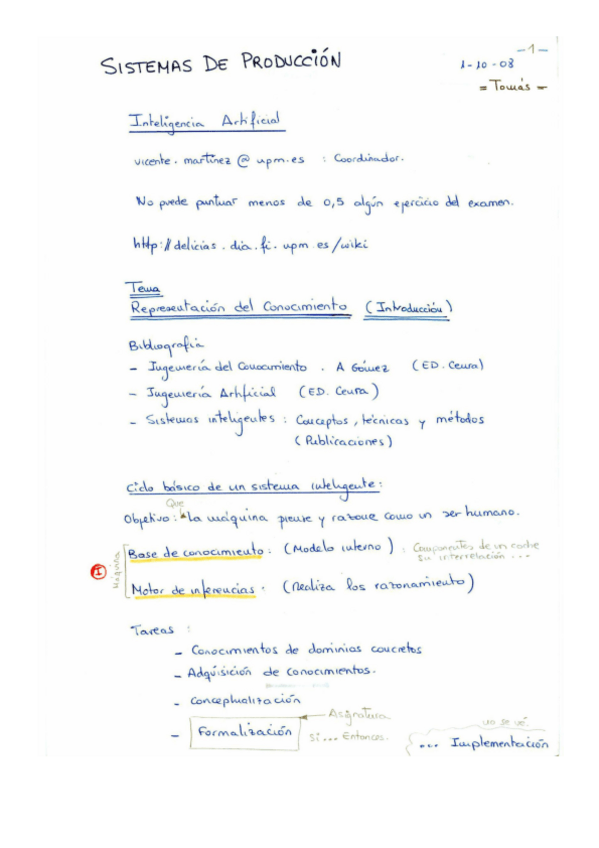 -1-
SISTEMAS DE PRODUCCIÓN
1-10-08
= Tomás -
Inteligencia Artificial
vicente.martinez@upm.es : Coordinador.
No puede puntuar menos de 0,5 algún ejercicio del examen.
http://delicias.dia.fi.upm.es/wiki
Tema
Representación del Conocimiento (Introducción)
Bibliografía
- Ingeniería del Conocimiento . A Gómez (ED. Ceura)
- Ingeniería Artificial (ED. Ceura)
- Sistemas inteligentes : Conceptos, técnicas y métodos
(Publicaciones)
Ciclo básico de un sistema inteligente:
Que
Objetivo: La máquina piense y razone como un ser humano.
Base de conocimiento : (Modelo interno) : Componentes de un coche
Su interrelación ...
Máquina
I
Motor de inferencias . (Realiza los razonamiento)
Tareas :
- Conocimientos de dominios concretos
- Adquisición de conocimientos.
- Conceptualización
- Formalización
Asignatura
Si ... Entonces.
no se ve.
... Implementación